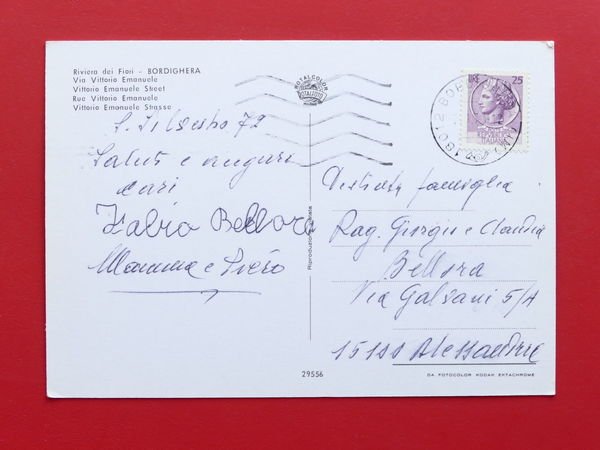 Riviera dei Fiori - BORDIGHERA
Via Vittorio Emanuele
Vittorio Emanuele Street
Rue Vittorio Emanuele
Vittorio Emanuele Strasse
S. Silvestro 72
Saluti e auguri
cari
Fabio Bellora
Mamma e Piero
ROTALCOLOR
ROTALFOTO
MILANO
Riproduzione vietata
29556
25
ITALIANA
18012 BOR
Distinta famiglia
Rag. Giorgio e Claudia
Bellora
Via Galvani 5/A
15100 Alessandria
DA FOTOCOLOR KODAK EKTACHROME